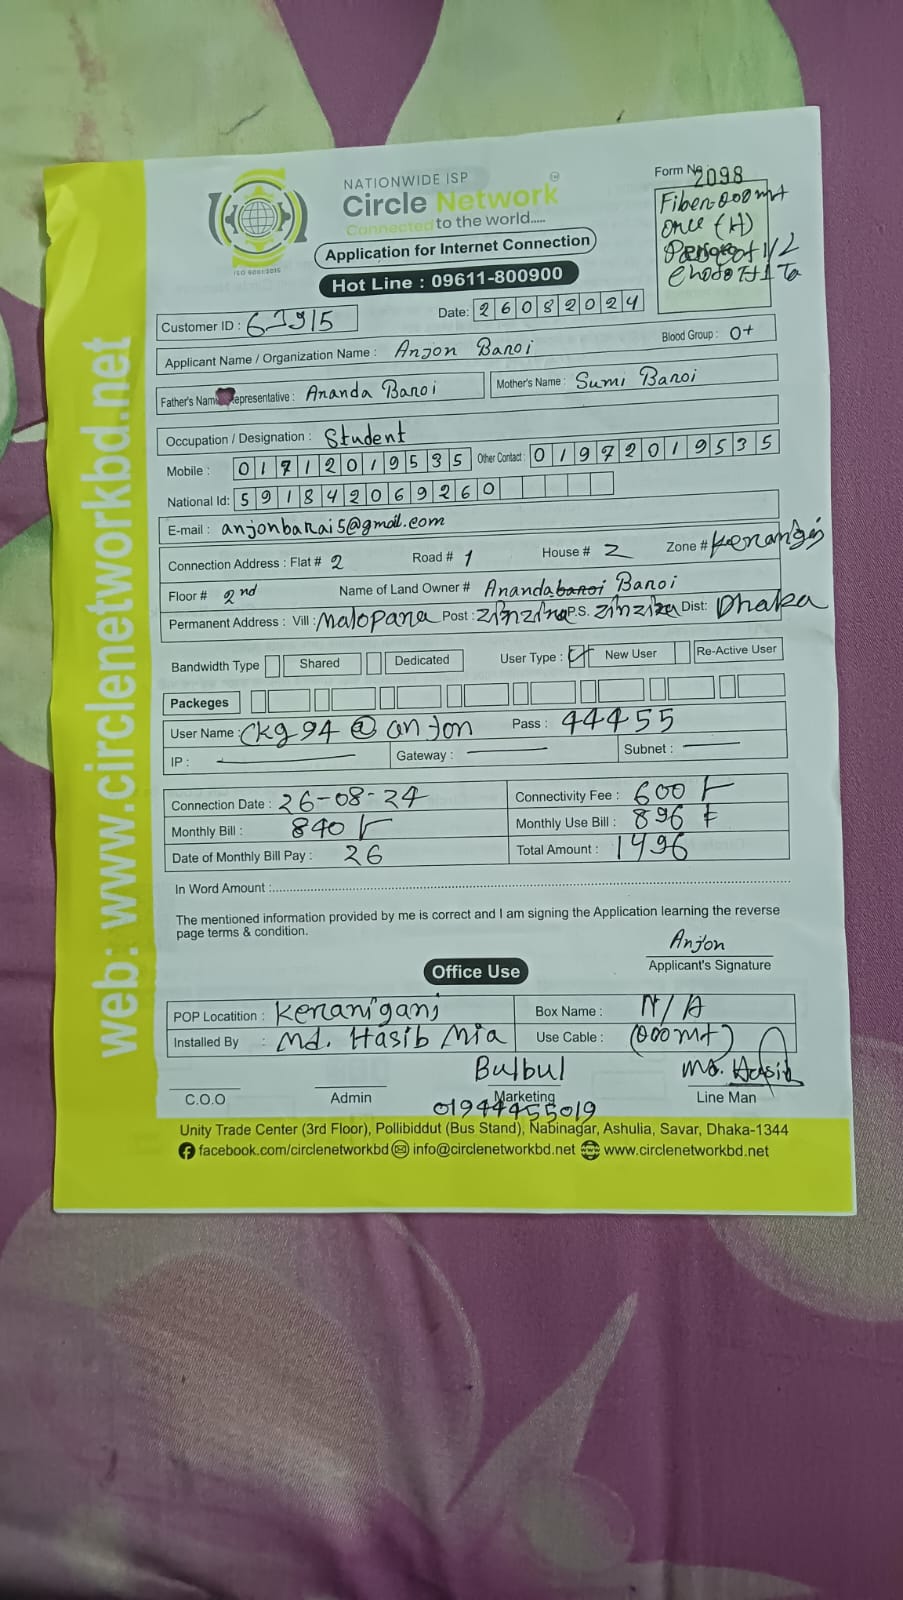 NATIONWIDE ISP
Circle Network
Connected to the world.....
Application for Internet Connection
Hot Line : 09611-800900
ISO 9001:2015
Form No 2098
Fiber-000mt
onu (H)
Customer ID : 63915
Date: 26082024
Applicant Name / Organization Name : Anjon Baroi Blood Group : O+
Father's Name Representative : Ananda Baroi Mother's Name : Sumi Baroi
Occupation / Designation : Student
Mobile : 01712019535 Other Contact : 01972019535
National Id: 591842069260
E-mail : anjonbarai5@gmail.com
Connection Address : Flat # 2 Road # 1 House # 2 Zone #
Floor # 2nd Name of Land Owner # Ananda baroi Baroi
Permanent Address : Vill : Malopara Post : P.S. Dist: Dhaka
Bandwidth Type Shared Dedicated User Type : New User Re-Active User
Packeges
User Name : ckg94@anjon Pass : 44455
IP : Gateway : Subnet :
Connection Date : 26-08-24 Connectivity Fee : 600
Monthly Bill : 840 Monthly Use Bill : 896
Date of Monthly Bill Pay : 26 Total Amount : 1496
In Word Amount :
The mentioned information provided by me is correct and I am signing the Application learning the reverse
page terms & condition.
Anjon
Applicant's Signature
Office Use
POP Locatition : Keraniganj Box Name : N/A
Installed By : Md. Hasib Mia Use Cable : (000mt)
Bulbul Md. Hasib
C.O.O Admin Marketing Line Man
01944455019
Unity Trade Center (3rd Floor), Pollibiddut (Bus Stand), Nabinagar, Ashulia, Savar, Dhaka-1344
facebook.com/circlenetworkbd info@circlenetworkbd.net www.circlenetworkbd.net
web: www.circlenetworkbd.net